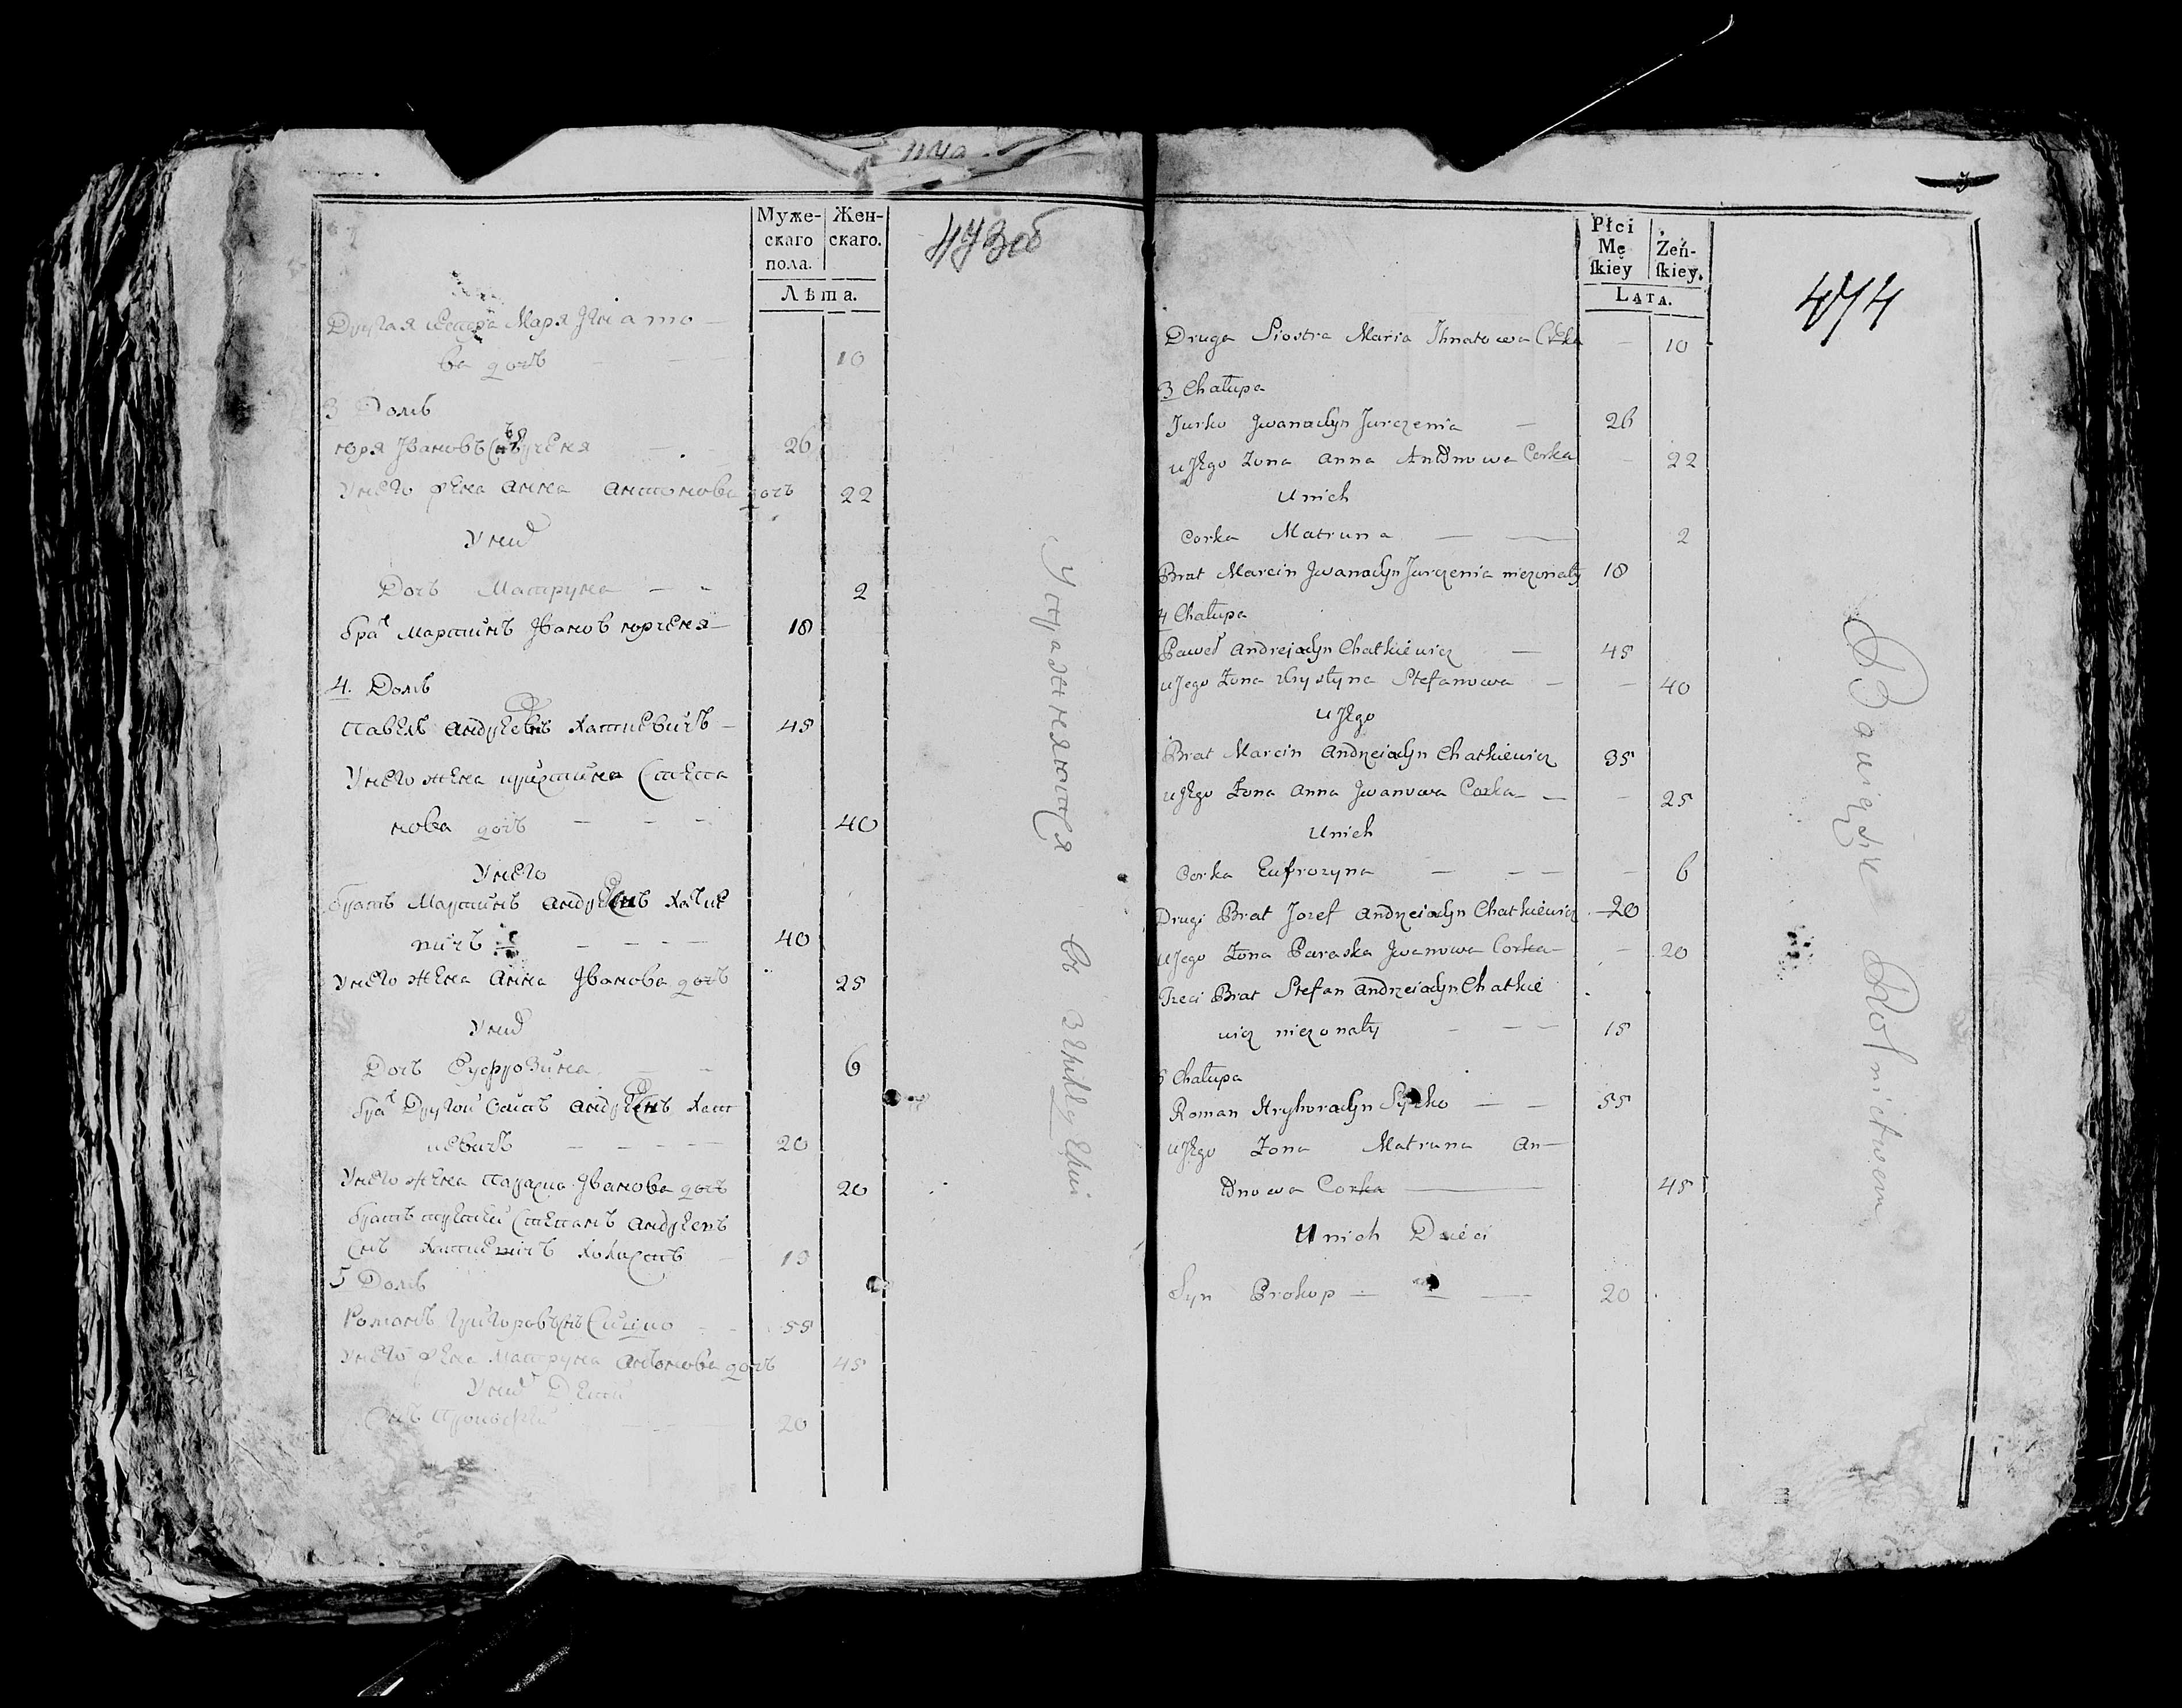 473об
Муже-
скаго
пола.
Жен-
скаго.
Лѣта.
Другая сестра Маря Iгнато
ва дочь — — 10
3 Домъ
Юря Iвановъ Юрченя — 26
У него жена Анна Антонова дочь 22
У них
Дочь Матруна — 2
братъ Мартинъ Iванов Юрченя — 18
4. Домъ
Павелъ Андреевъ Хаткевичъ — 45
У него жена Христина Степа
нова дочь — — — 40
У него
братъ Мартинъ Андреевъ Хатке
вичъ — — — — 40
У него жена Анна Iванова дочь 25
У них
Дочь Еуфрозина — — 6
братъ Другой Андреевъ Хат
кевичъ — — — — 20
У него жена Параска Iванова дочь 20
братъ третий Степанъ Андреевъ
Снъ Хаткевичъ холостъ
5 Домъ
Романъ Григоровъ Снъ — — 55
У него жена Матруна Антонова дочь 45
У них Дети
Снъ — — 20
Упражняются в
474
Płci
Mę
ſkiey
Żeń-
ſkiey.
Lata.
Druga Siostra Maria Ihnatowa Corka — 10
3 Chałupa
Jurko Jwanaſyn Jurczenia — 26
u Jego Zona Anna Antonowa Corka — 22
U nich
Corka Matruna — — 2
Brat Marcin Jwanaſyn Jurczenia niezonaty 18
4 Chałupa
Paweł Andrejaſyn Chatkiewicz — 45
u Jego Zona Krystyna Stefanowa — — 40
u Jego
Brat Marcin Andrzeiaſyn Chatkiewicz 35
u Jego Zona Anna Jwanowa Corka — — 25
U nich
Corka Eufrozyna — — — — 6
Drugi Brat Jozef Andrzeiaſyn Chatkiewicz — 20
u Jego Zona Paraska Jwanowa Corka — — 20
Trzeci Brat Stefan Andrzeiaſyn Chatkie
wicz niezonaty — — — 15
5 Chałupa
Roman Hryhoraſyn — — 55
u Jego Zona Matruna An—
tonowa Corka — 45
U nich Dzieci
Syn Prokop — — — 20
Bawiąsię Rolnictwem